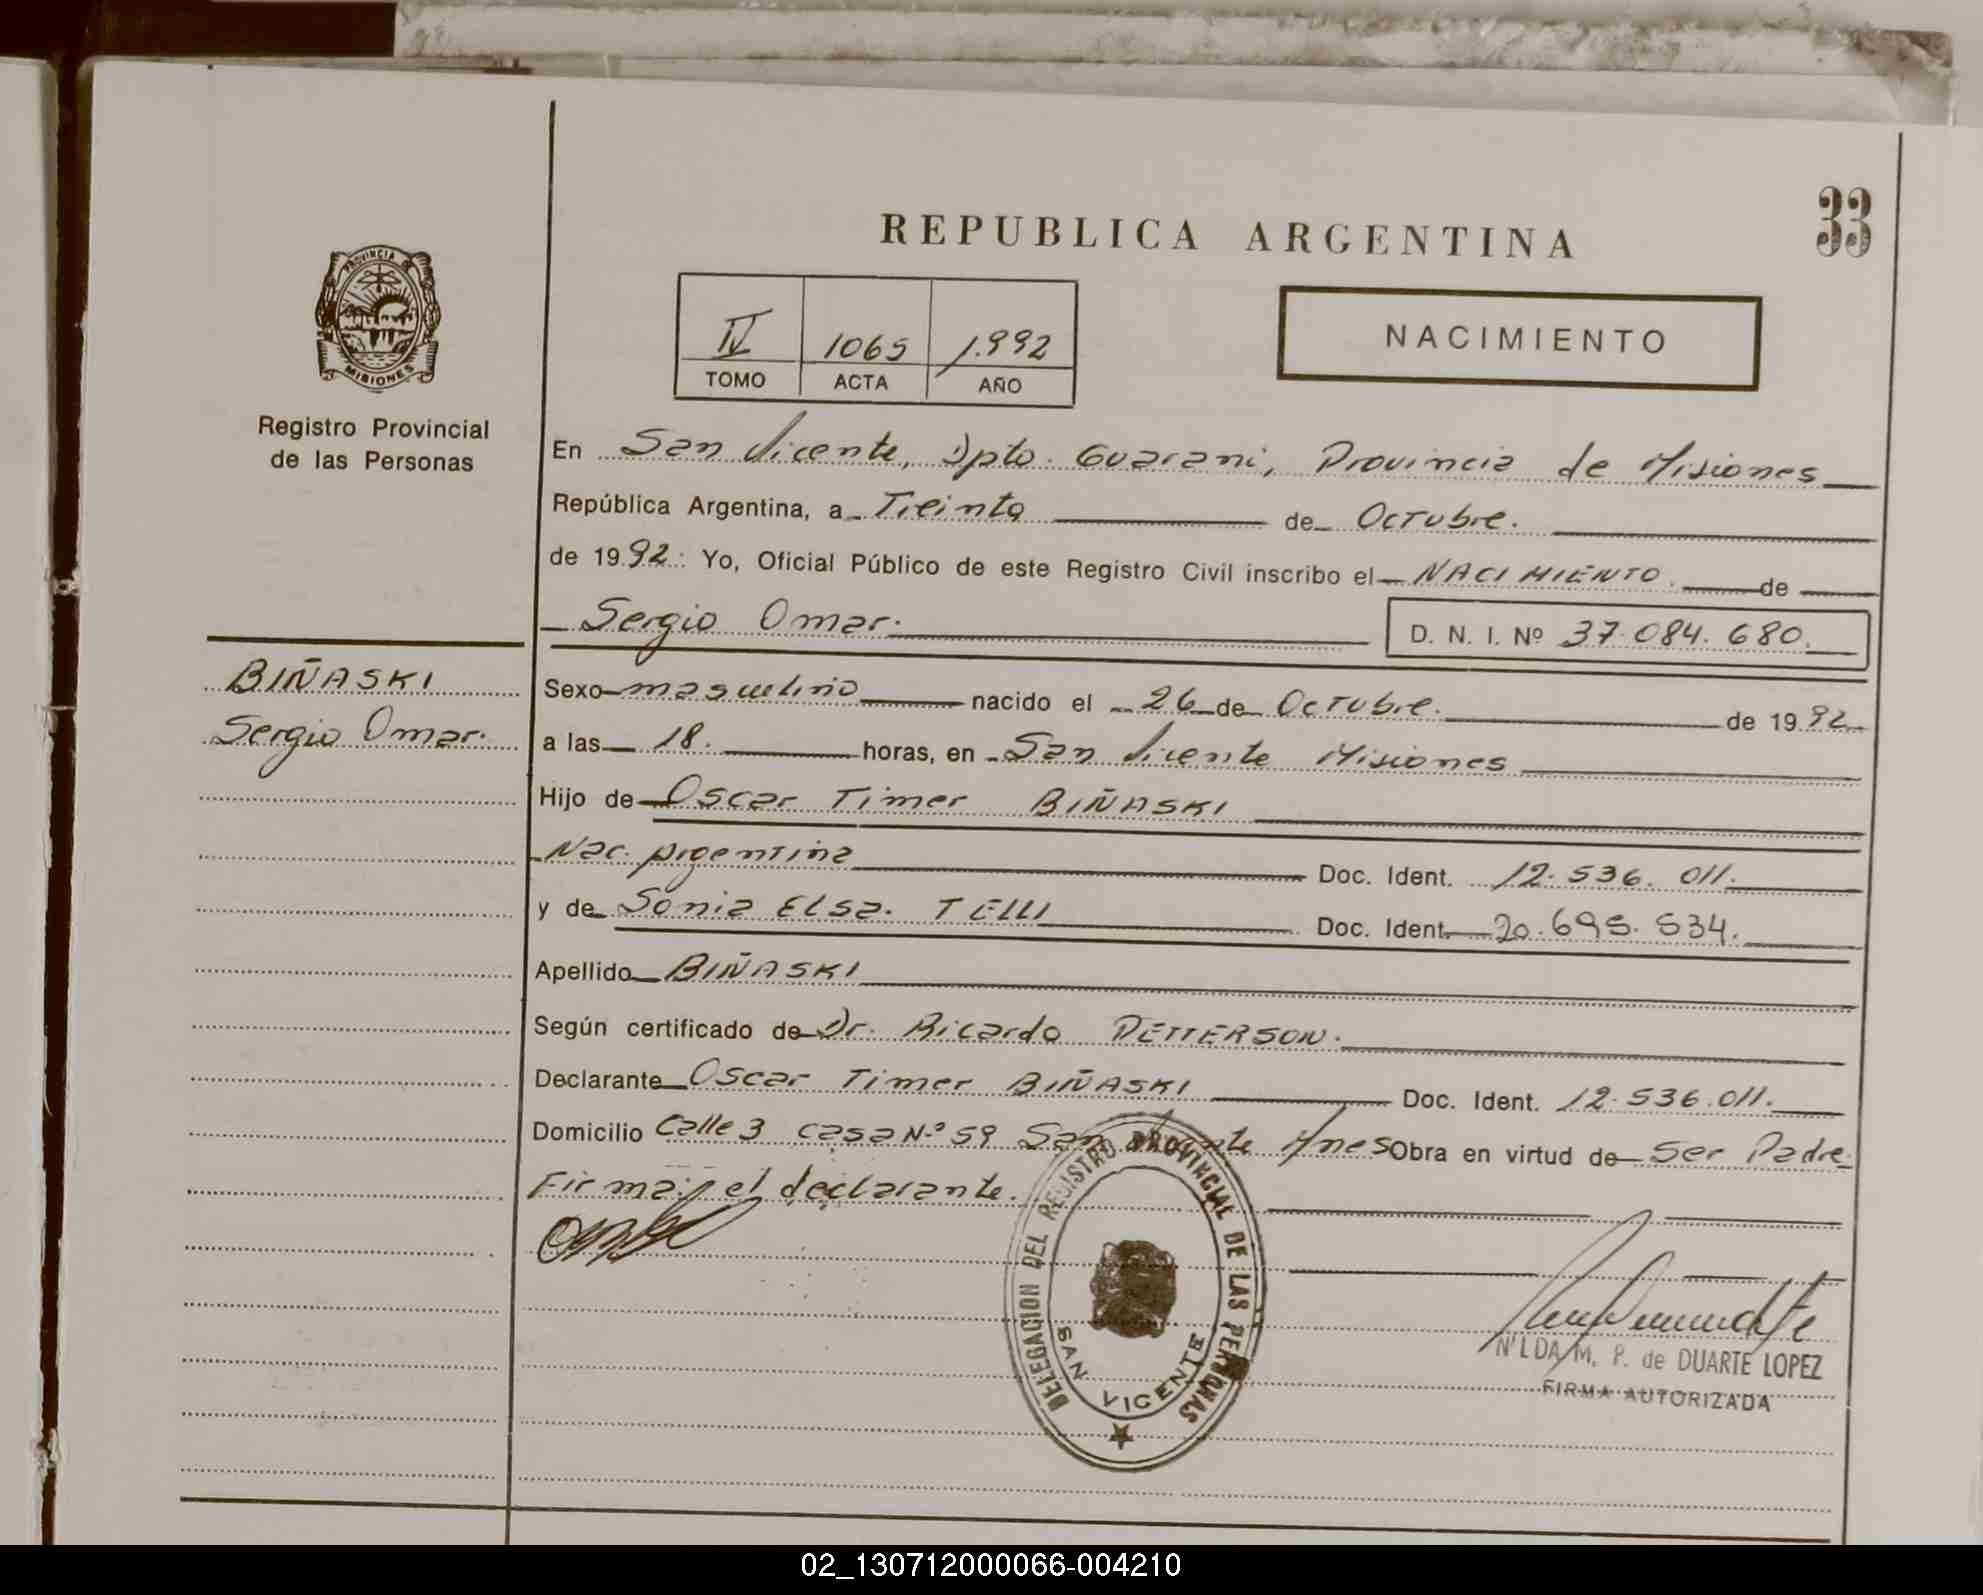 33
REPUBLICA ARGENTINA
PROVINCIA DE
MISIONES
Registro Provincial
de las Personas
IV 1065 1.992
TOMO ACTA AÑO
NACIMIENTO
En San Vicente, Dpto. Guarani, Provincia de Misiones
República Argentina, a Treinta de Octubre.
de 1992: Yo, Oficial Público de este Registro Civil inscribo el NACIMIENTO. de
Sergio Omar.
D. N. I. Nº 37.084.680.
BIÑASKI
Sergio Omar.
Sexo masculino nacido el 26 de Octubre. de 1992
a las 18. horas, en San Vicente Misiones
Hijo de Oscar Timer BIÑASKI
Nac. Argentina Doc. Ident. 12.536.011.
y de Sonia Elsa. TELLI Doc. Ident. 20.695.534.
Apellido BIÑASKI
Según certificado de Dr. Ricardo PETTERSON.
Declarante Oscar Timer BIÑASKI Doc. Ident. 12.536.011.
Domicilio Calle 3 casa N.º 59 San Vicente Mnes Obra en virtud de Ser Padre.
Firma: el declarante.
DELEGACION DEL REGISTRO PROVINCIAL DE LAS PERSONAS
SAN VICENTE
NILDA M. P. de DUARTE LOPEZ
FIRMA AUTORIZADA
02_130712000066-004210